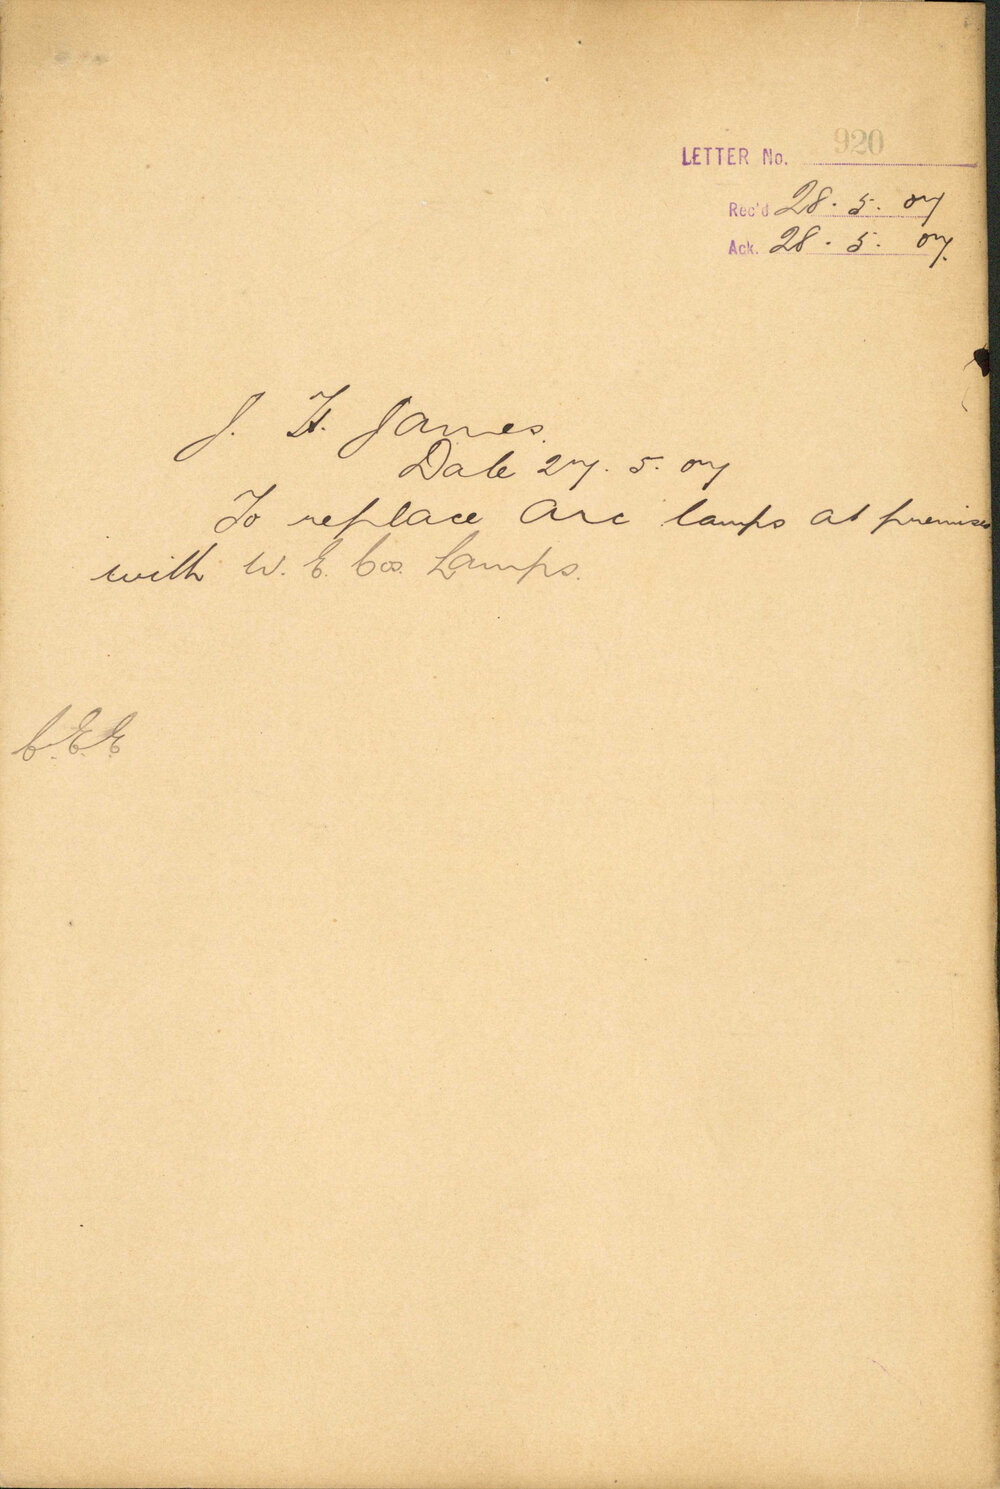 LETTER No. 920
Rec'd 28. 5. 07
Ack. 28. 5. 07.
J. H. James.
Date 27. 5. 07
To replace Arc lamps at premises
with W. E. Cos. Lamps.
C.E.E